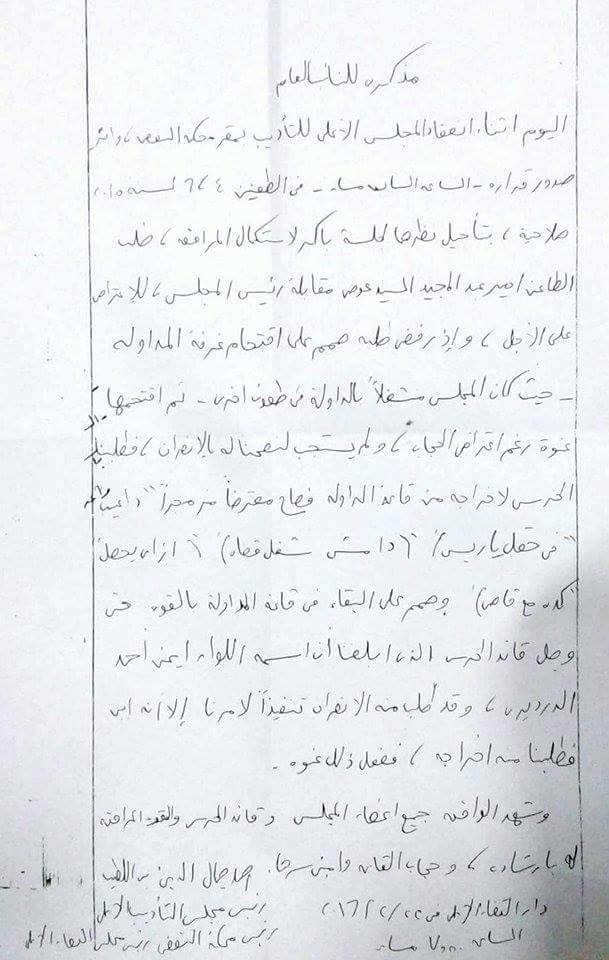 مذكره للنائب العام
اليوم اثناء انعقاد المجلس الأعلى للتأديب بمقر محكمة النقض، واثر
صدور قراره - الساعه السادسه مساء - فى الطعنين ٤، ٦ لسنه ٢٠١٥
صلاحية، بتأجيل نظرها لجلسة باكر لاستكمال المرافعه، طلب
الطاعن امير عبد المجيد السيد عوض مقابلة رئيس المجلس، للاعتراض
على الأجل، وإذ رفض طلبه صمم على اقتحام غرفة المداوله
- حيث كان المجلس منشغلاً بالمداولة فى طعون اخرى - ثم اقتحمها
عنوة رغم اعتراض الحجاب، ولم يستجب لنصحنا له بالانصراف، فطلبنا
الحرس لاخراجه من قاعة المداوله فصاح معترضاً مزمجراً
"فى حقل ياريس" "دا مش شغل قضاه" "ازاى يحصل
كده مع قاض" وصمم على البقاء فى قاعة المداولة بالقوه حتى
وصل قائد الحرس الذى ابلغنا أن اسمه اللواء ايمن احمد
الدرديرى، وقد طلب منه الانصراف تنفيذاً لأمرنا إلا انه ابى
فطلبنا منه اخراجه، ففعل ذلك عنوه -
وشهد الواقعه جميع اعضاء المجلس وقائد الحرس والقوه المرافقه
له بارشاده، وحجاب القاعه وامين سرها
دار القضاء الأعلى فى ٢٢/٢/٢٠١٦ رئيس مجلس التأديب الأعلى
الساعه ٧٫٠٠ مساء رئيس محكمة النقض رئيس مجلس القضاء الأعلى